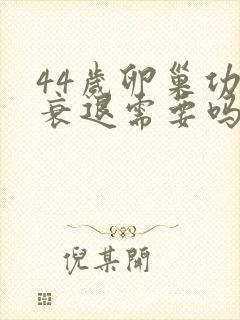 44岁卵巢功
衰退需要吗
倪某開